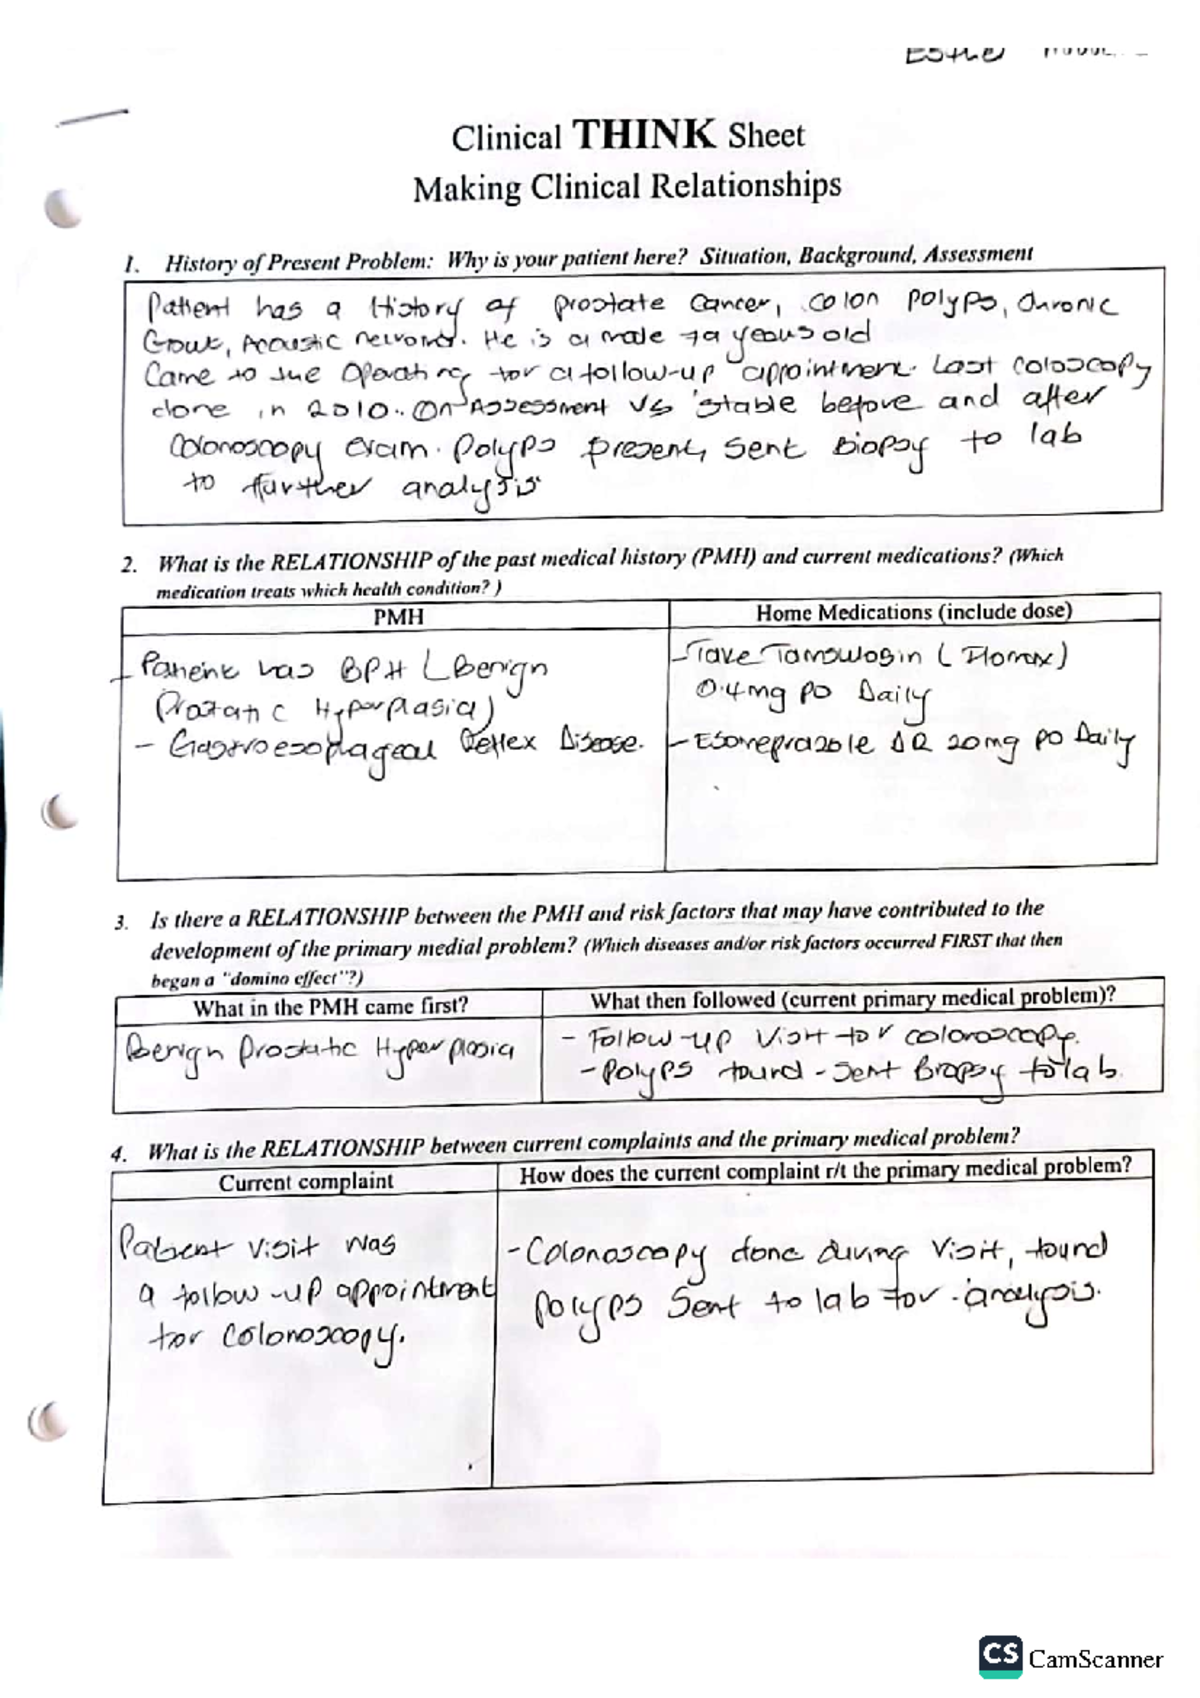 Esther
Clinical THINK Sheet
Making Clinical Relationships
1. History of Present Problem: Why is your patient here? Situation, Background, Assessment
Patient has a History of prostate cancer, colon polyps, chronic
Gout, Acoustic neuroma. He is a male 79 years old
Came to the Operating for a follow-up appointment. Last coloscopy
done in 2010. On Assessment VS stable before and after
Colonoscopy exam. Polyps present, sent Biopsy to lab
to further analysis
2. What is the RELATIONSHIP of the past medical history (PMH) and current medications? (Which
medication treats which health condition? )
PMH
Home Medications (include dose)
- Patient has BPH (Benign
Prostatic Hyperplasia)
- Gastroesophageal Reflex Disease.
- Take Tamsulosin (Flomax)
0.4mg PO Daily
- Esomeprazole DR 20mg PO Daily
3. Is there a RELATIONSHIP between the PMH and risk factors that may have contributed to the
development of the primary medial problem? (Which diseases and/or risk factors occurred FIRST that then
began a "domino effect"?)
What in the PMH came first?
What then followed (current primary medical problem)?
Benign Prostatic Hyperplasia
- Follow-up Visit for colonoscopy.
- Polyps found - sent Biopsy to lab.
4. What is the RELATIONSHIP between current complaints and the primary medical problem?
Current complaint
How does the current complaint r/t the primary medical problem?
Patient visit was
a follow-up appointment
for colonoscopy.
- Colonoscopy done during Visit, found
polyps sent to lab for analysis.
CS CamScanner